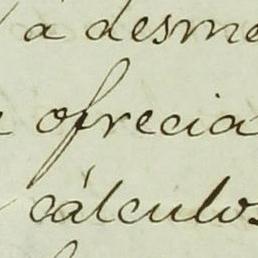 á desme
ofrecia
cálculos